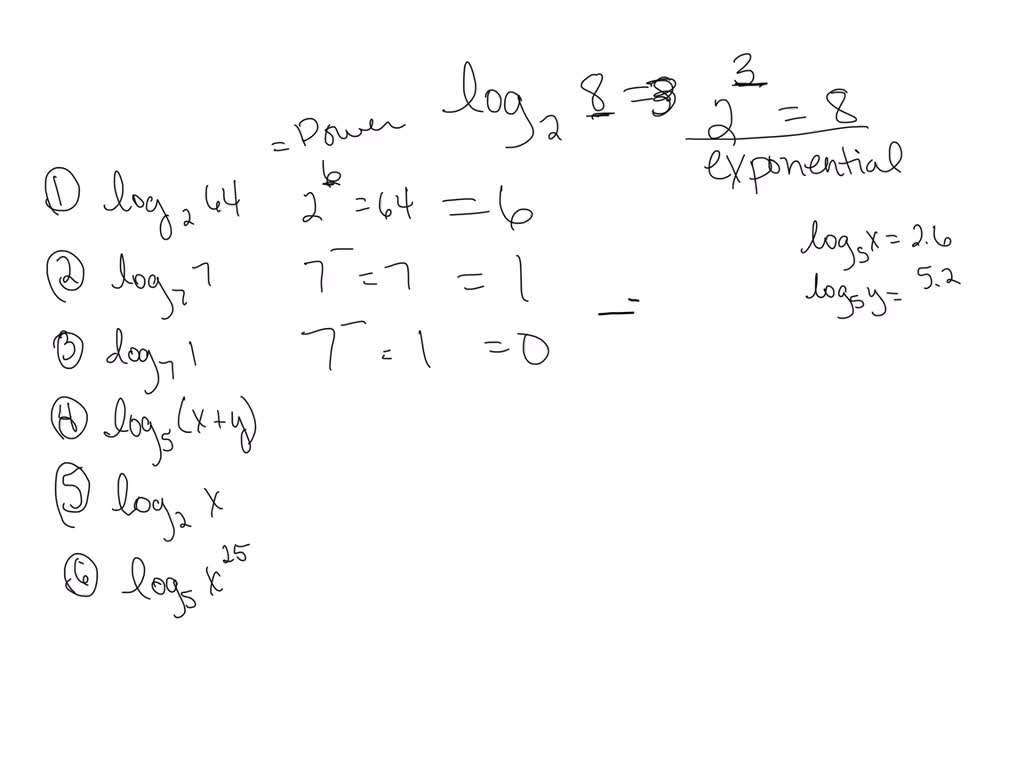 log₂ 8 = 3
2³ = 8
exponential
= Power
① log₂ 64 2⁶ = 64 = 6
② log₇ 7 7⁻ = 7 = 1
③ log₇ 1 7⁻ = 1 = 0
④ log₅ (x+y)
⑤ log₂ x
⑥ log₅ x²⁵
log₅ x = 2.6
log₅ y = 5.2
=